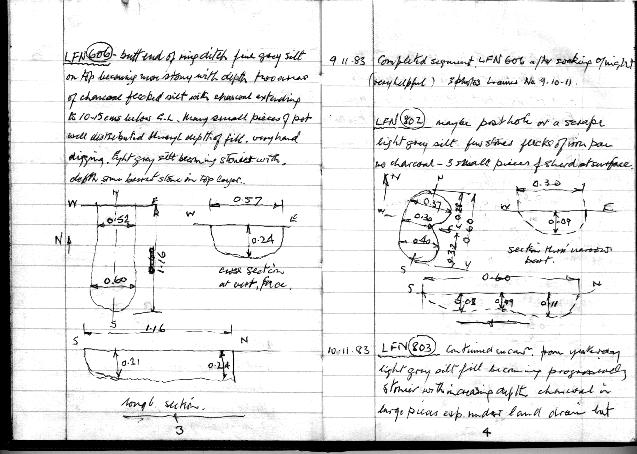 LFN 606 - butt end of ring ditch fine gray silt
on top becoming more stony with depth two areas
of charcoal flecked silt with charcoal extending
to 10-15 cms below G.L. Many small pieces of pot
well distributed through depth of fill. very hard
digging. light gray silt becoming stonier with
depth some burnt stone in top layer.
N
W E
0.52
N
1.16
0.60
S
0.57
W E
0.24
cross section
at vert. face
S 1.16 N
0.21 0.24
long section.
3
9.11.83 Completed segment LFN 606 after soaking o/night
(very helpful) 3 photos No 9.10.11.
LFN 802 maybe post hole or a scrape
light gray silt few stones flecks of iron pan
no charcoal - 3 small pieces of sherd at surface.
N
N
W
0.37
0.30
0.28
0.60
0.40
0.32
S
0.30
W E
0.09
section thro' narrows
part.
0.60
S N
0.08 0.09 0.11
10.11.83 LFN 803 Continued from yesterday
light gray silt fill becoming progressively
stonier with increasing depth charcoal in
large pieces esp. under land drain but
4